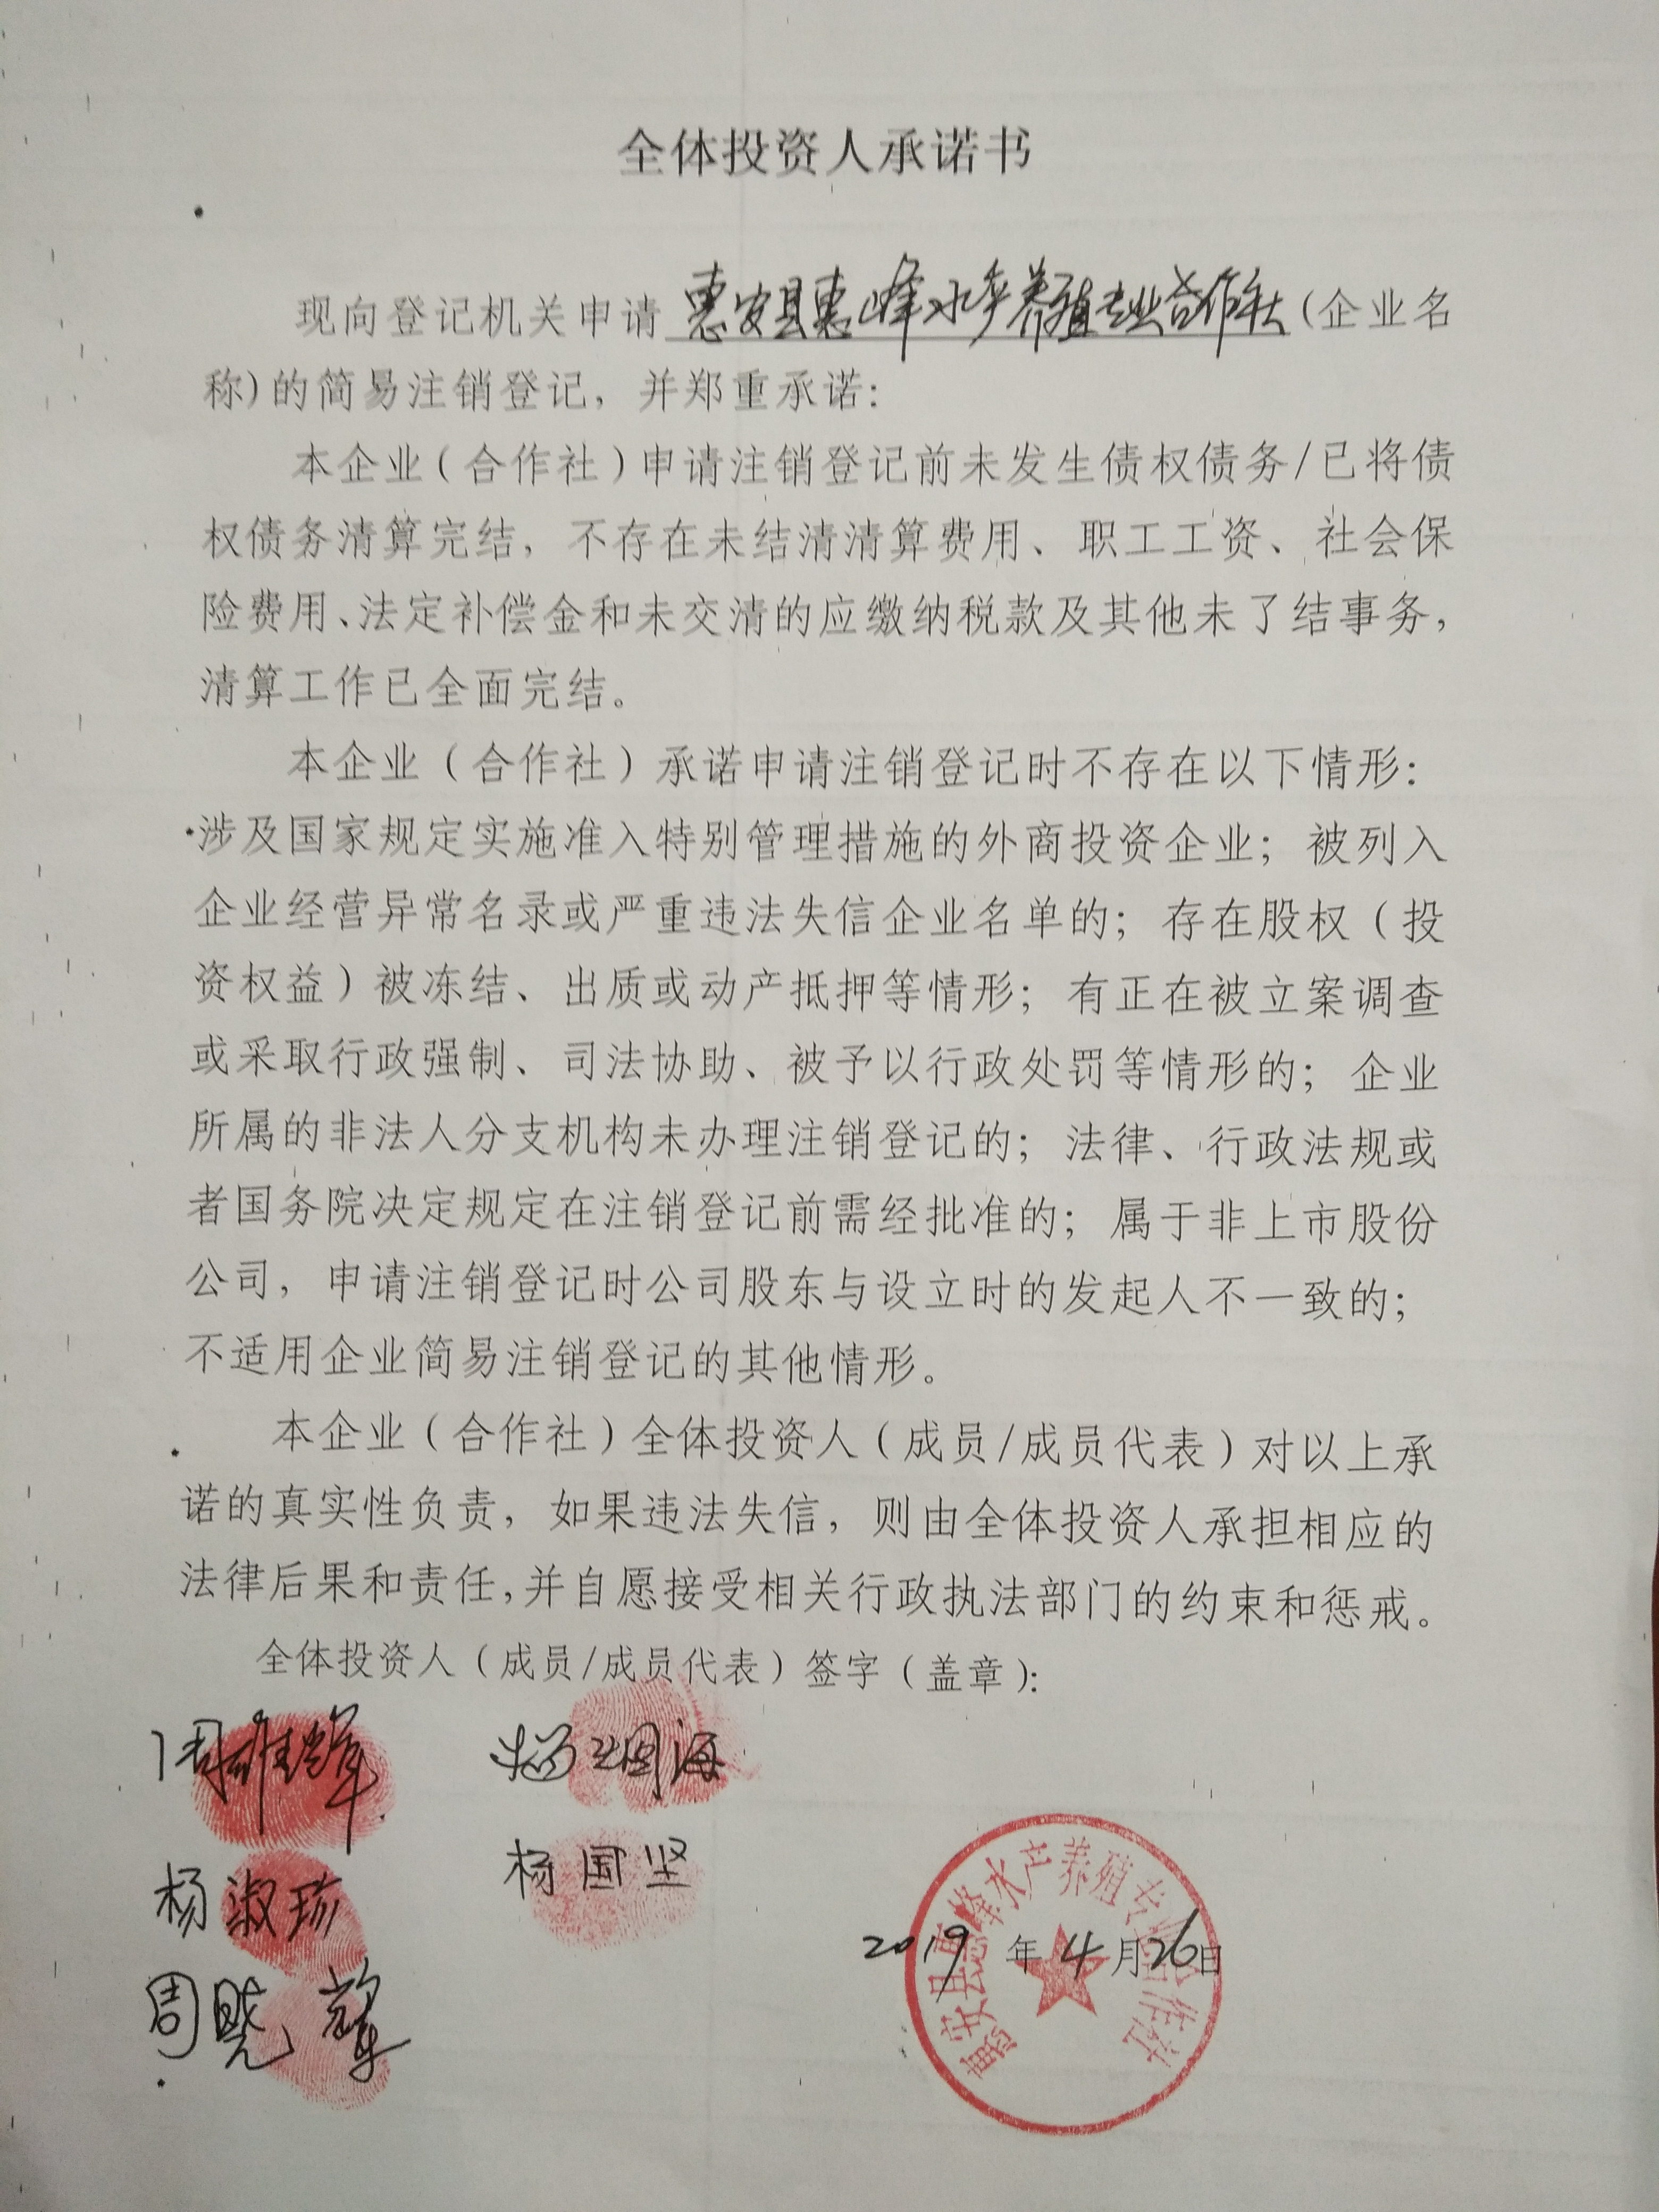 全体投资人承诺书
现向登记机关申请惠安县惠峰水产养殖专业合作社(企业名
称)的简易注销登记，并郑重承诺：
本企业（合作社）申请注销登记前未发生债权债务/已将债
权债务清算完结，不存在未结清清算费用、职工工资、社会保
险费用、法定补偿金和未交清的应缴纳税款及其他未了结事务，
清算工作已全面完结。
本企业（合作社）承诺申请注销登记时不存在以下情形：
涉及国家规定实施准入特别管理措施的外商投资企业；被列入
企业经营异常名录或严重违法失信企业名单的；存在股权（投
资权益）被冻结、出质或动产抵押等情形；有正在被立案调查
或采取行政强制、司法协助、被予以行政处罚等情形的；企业
所属的非法人分支机构未办理注销登记的；法律、行政法规或
者国务院决定规定在注销登记前需经批准的；属于非上市股份
公司，申请注销登记时公司股东与设立时的发起人不一致的；
不适用企业简易注销登记的其他情形。
本企业（合作社）全体投资人（成员/成员代表）对以上承
诺的真实性负责，如果违法失信，则由全体投资人承担相应的
法律后果和责任,并自愿接受相关行政执法部门的约束和惩戒。
全体投资人（成员/成员代表）签字（盖章）：
周雄辉 杨国海
杨淑珍 杨国坚
周晓辉
2019年4月26日
惠安县惠峰水产养殖专业合作社